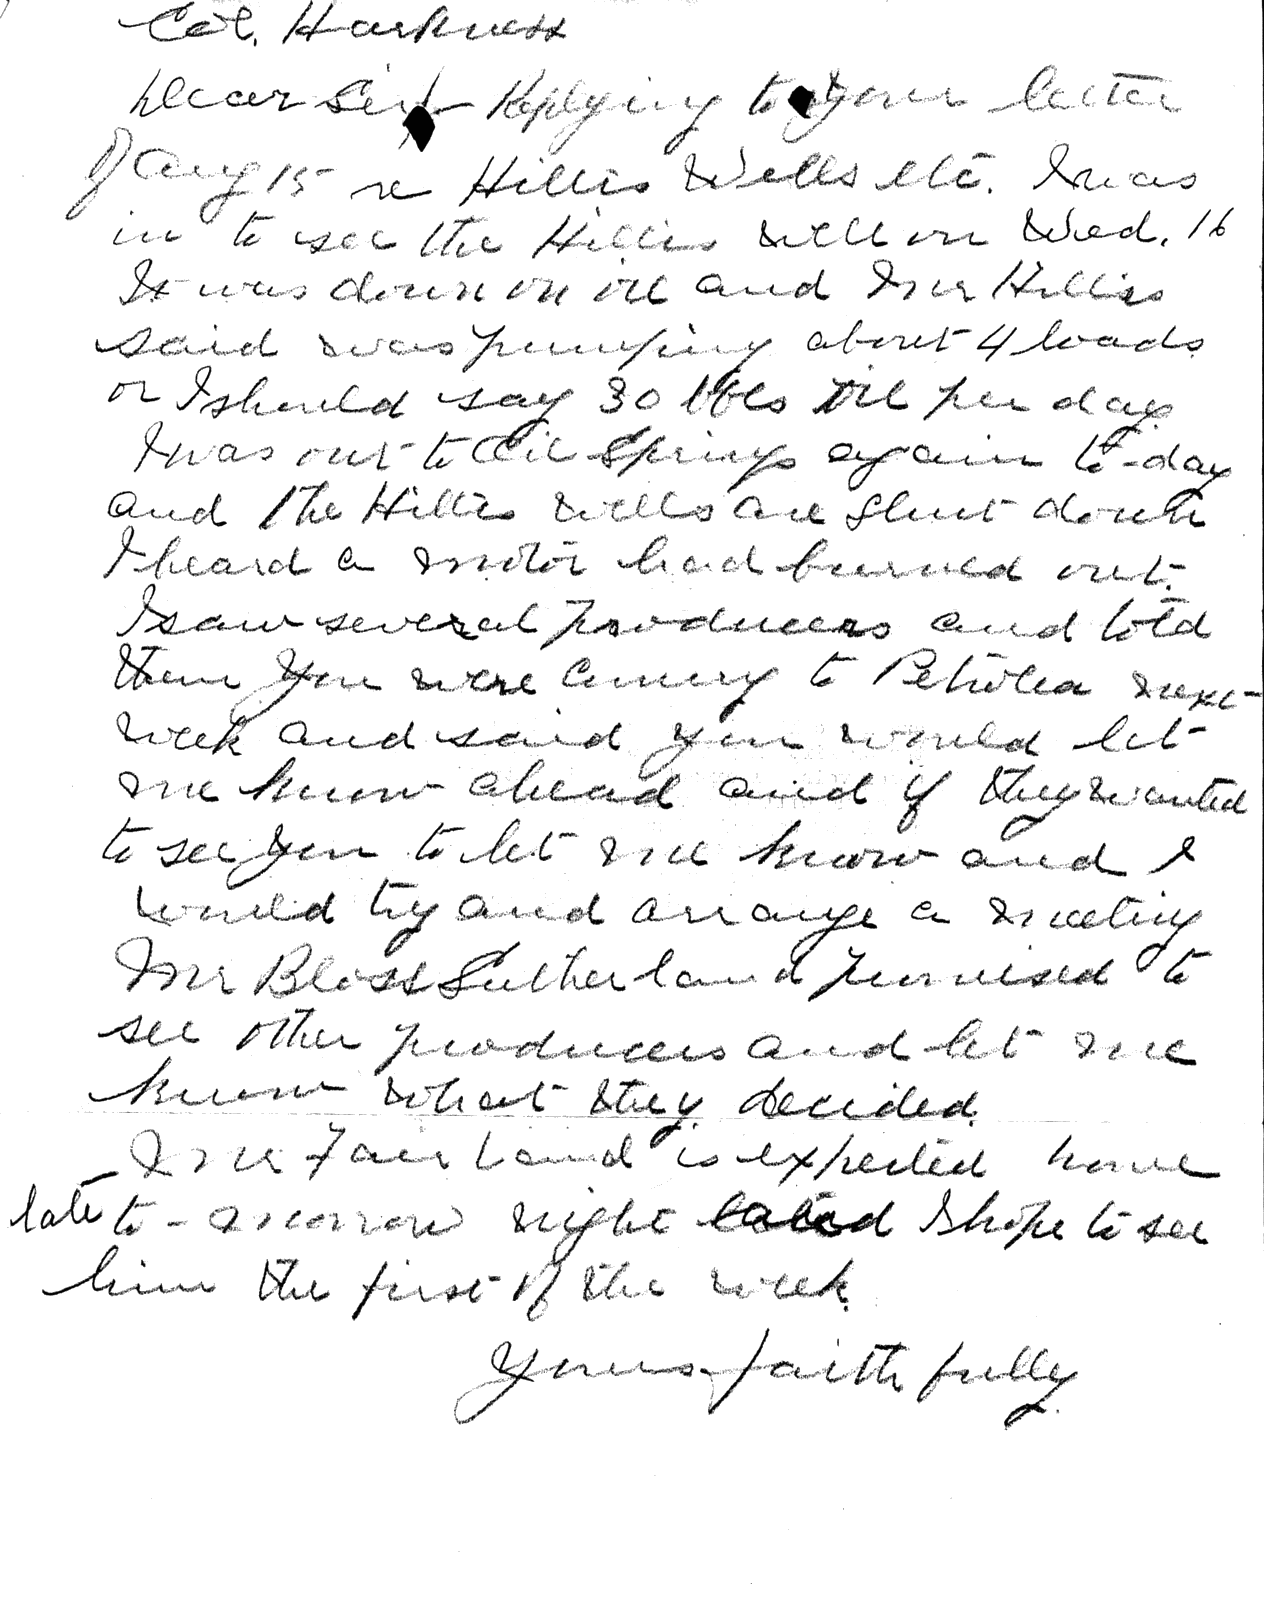 Col. Harkness
Dear Sir Replying to your letter
of Aug 15 re Hillis Wells etc. I was
in to see the Hillis well on Wed. 16
It was down on oil and Mr Hillis
said was pumping about 4 loads
or I should say 30 bbls oil per day
I was out to Oil Springs again to-day
and the Hillis wells are shut down
I heard a motor had burned out.
I saw several producers and told
them you were coming to Petrolea next
week and said you would let
me know ahead and if they wanted
to see you to let me know and I
would try and arrange a meeting
Mr Bloss Sutherland promised to
see other producers and let me
know what they decided.
Mr Fairbank is expected home
late to-morrow night and I hope to see
him the first of the week.
Yours faithfully.